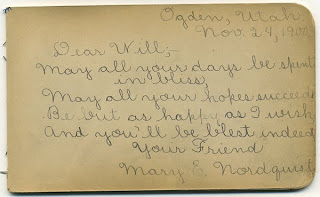 Ogden, Utah,
Nov. 24, 1900
Dear Will;-
May all your days be spent
in bliss,
May all your hopes succeed
Be but as happy as I wish,
And you'll be blest indeed
Your Friend
Mary E. Nordquist